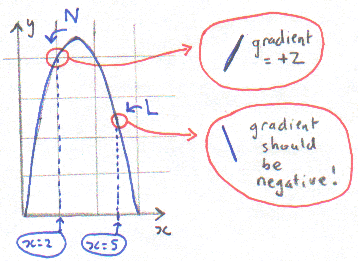 y
N
L
x
x=2
x=5
gradient
= +2
gradient
should
be
negative!